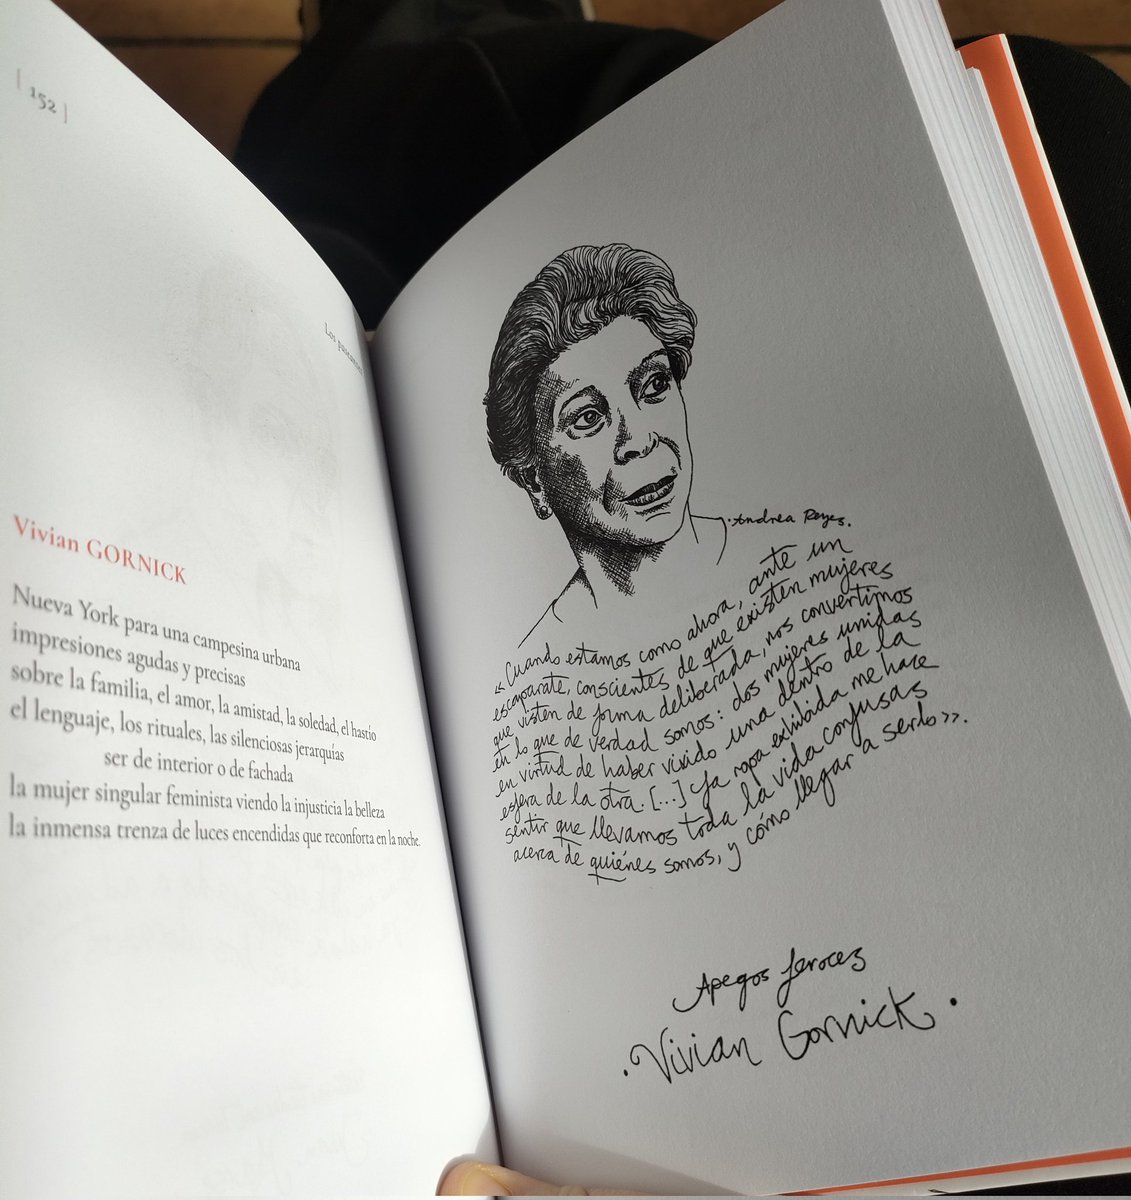 [ 152 ]
Los
Vivian GORNICK
Nueva York para una campesina urbana
impresiones agudas y precisas
sobre la familia, el amor, la amistad, la soledad, el hastío
el lenguaje, los rituales, las silenciosas jerarquías
ser de interior o de fachada
la mujer singular feminista viendo la injusticia la belleza
la inmensa trenza de luces encendidas que reconforta en la noche.
·Andrea Reyes.
«Cuando estamos como ahora, ante un
escaparate, conscientes de que existen mujeres
que visten de forma deliberada, nos convertimos
en lo que de verdad somos: dos mujeres unidas
en virtud de haber vivido una dentro de la
esfera de la otra. [...] La ropa exhibida me hace
sentir que llevamos toda la vida confusas
acerca de quiénes somos, y cómo llegar a serlo».
Apegos feroces
·Vivian Gornick·